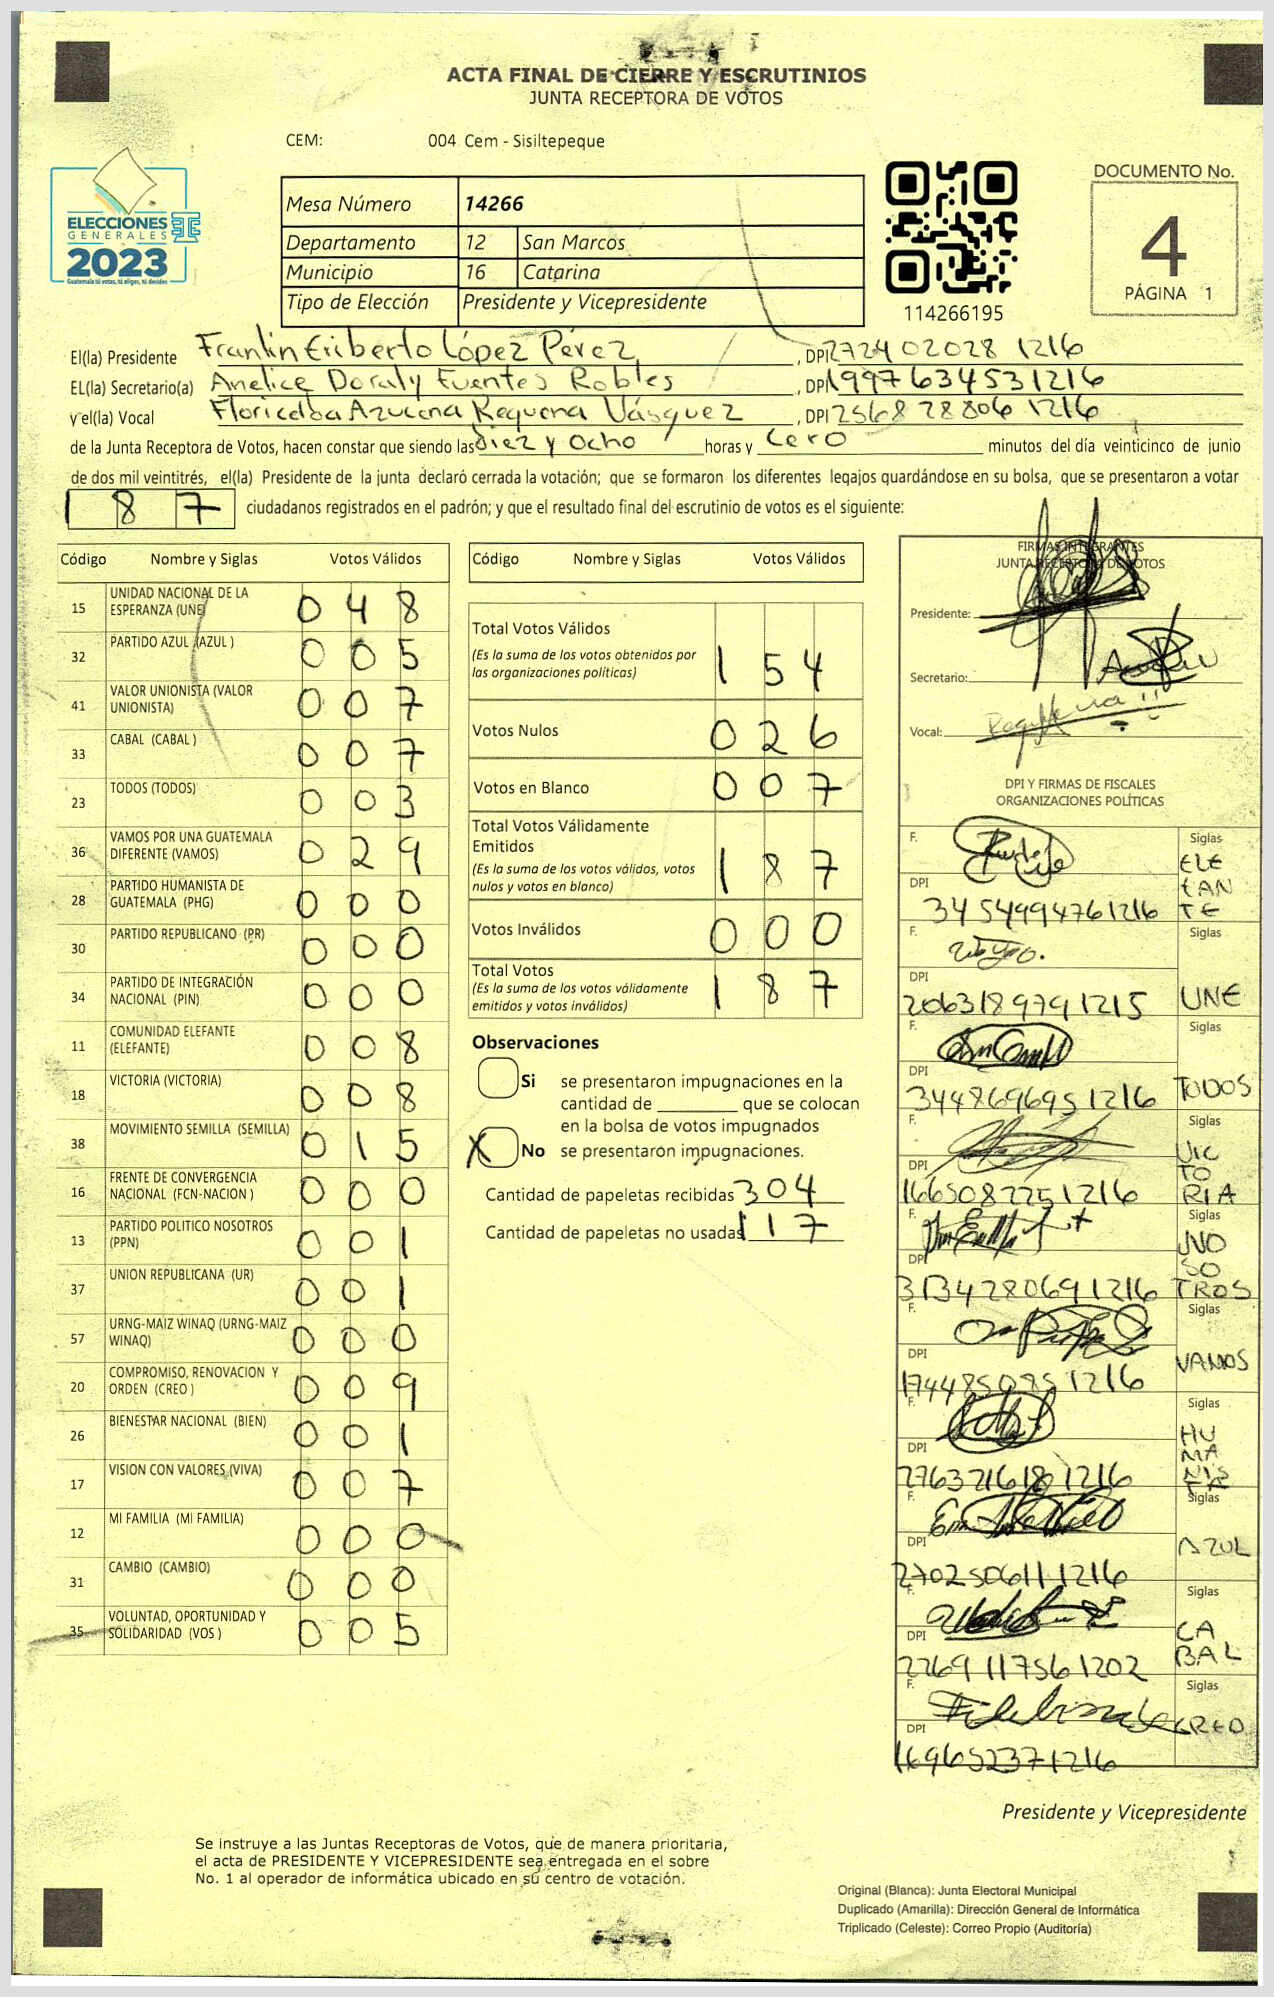 ACTA FINAL DE CIERRE Y ESCRUTINIOS
JUNTA RECEPTORA DE VOTOS
CEM: 004 Cem - Sisiltepeque
ELECCIONES
GENERALES
2023
Guatemala tú votas, tú eliges, tú decides
Mesa Número 14266
Departamento 12 San Marcos
Municipio 16 Catarina
Tipo de Elección Presidente y Vicepresidente
114266195
DOCUMENTO No.
4
PÁGINA 1
El(la) Presidente Franklin Eriberto López Pérez, DPI 2724 02028 1216
EL(la) Secretario(a) Anelice Doraly Fuentes Robles, DPI 1997634531216
y el(la) Vocal Floricelba Azucena Requena Vásquez, DPI 2568 28806 1216
de la Junta Receptora de Votos, hacen constar que siendo las diez y ocho horas y cero minutos del día veinticinco de junio
de dos mil veintitrés, el(la) Presidente de la junta declaró cerrada la votación; que se formaron los diferentes legajos guardándose en su bolsa, que se presentaron a votar
187 ciudadanos registrados en el padrón; y que el resultado final del escrutinio de votos es el siguiente:
Código Nombre y Siglas Votos Válidos
15 UNIDAD NACIONAL DE LA ESPERANZA (UNE) 048
32 PARTIDO AZUL (AZUL ) 005
41 VALOR UNIONISTA (VALOR UNIONISTA) 007
33 CABAL (CABAL ) 007
23 TODOS (TODOS) 003
36 VAMOS POR UNA GUATEMALA DIFERENTE (VAMOS) 029
28 PARTIDO HUMANISTA DE GUATEMALA (PHG) 000
30 PARTIDO REPUBLICANO (PR) 000
34 PARTIDO DE INTEGRACIÓN NACIONAL (PIN) 000
11 COMUNIDAD ELEFANTE (ELEFANTE) 008
18 VICTORIA (VICTORIA) 008
38 MOVIMIENTO SEMILLA (SEMILLA) 015
16 FRENTE DE CONVERGENCIA NACIONAL (FCN-NACION ) 000
13 PARTIDO POLITICO NOSOTROS (PPN) 001
37 UNION REPUBLICANA (UR) 001
57 URNG-MAIZ WINAQ (URNG-MAIZ WINAQ) 000
20 COMPROMISO, RENOVACION Y ORDEN (CREO ) 009
26 BIENESTAR NACIONAL (BIEN) 001
17 VISION CON VALORES (VIVA) 007
12 MI FAMILIA (MI FAMILIA) 000
31 CAMBIO (CAMBIO) 000
35 VOLUNTAD, OPORTUNIDAD Y SOLIDARIDAD (VOS ) 005
Código Nombre y Siglas Votos Válidos
Total Votos Válidos
(Es la suma de los votos obtenidos por
las organizaciones políticas) 154
Votos Nulos 026
Votos en Blanco 007
Total Votos Válidamente
Emitidos
(Es la suma de los votos válidos, votos
nulos y votos en blanco) 187
Votos Inválidos 000
Total Votos
(Es la suma de los votos válidamente
emitidos y votos inválidos) 187
Observaciones
Si se presentaron impugnaciones en la
cantidad de ________ que se colocan
en la bolsa de votos impugnados
X No se presentaron impugnaciones.
Cantidad de papeletas recibidas 304
Cantidad de papeletas no usadas 117
FIRMAS INTEGRANTES
JUNTA RECEPTORA DE VOTOS
Presidente:
Secretario:
Vocal:
DPI Y FIRMAS DE FISCALES
ORGANIZACIONES POLÍTICAS
F. Siglas ELEFANTE
DPI 3454994761216
F. Siglas UNE
DPI 2063189791215
F. Siglas TODOS
DPI 3448696951216
F. Siglas VICTORIA
DPI 1665082251216
F. Siglas NOSOTROS
DPI 3134280691216
F. Siglas VAMOS
DPI 1744850851216
F. Siglas HUMANISTA
DPI 2763216181216
F. Siglas AZUL
DPI 2702506111216
F. Siglas CABAL
DPI 2269117561202
F. Siglas CREO
DPI 169652371216
Presidente y Vicepresidente
Se instruye a las Juntas Receptoras de Votos, que de manera prioritaria,
el acta de PRESIDENTE Y VICEPRESIDENTE sea entregada en el sobre
No. 1 al operador de informática ubicado en su centro de votación.
Original (Blanca): Junta Electoral Municipal
Duplicado (Amarilla): Dirección General de Informática
Triplicado (Celeste): Correo Propio (Auditoría)